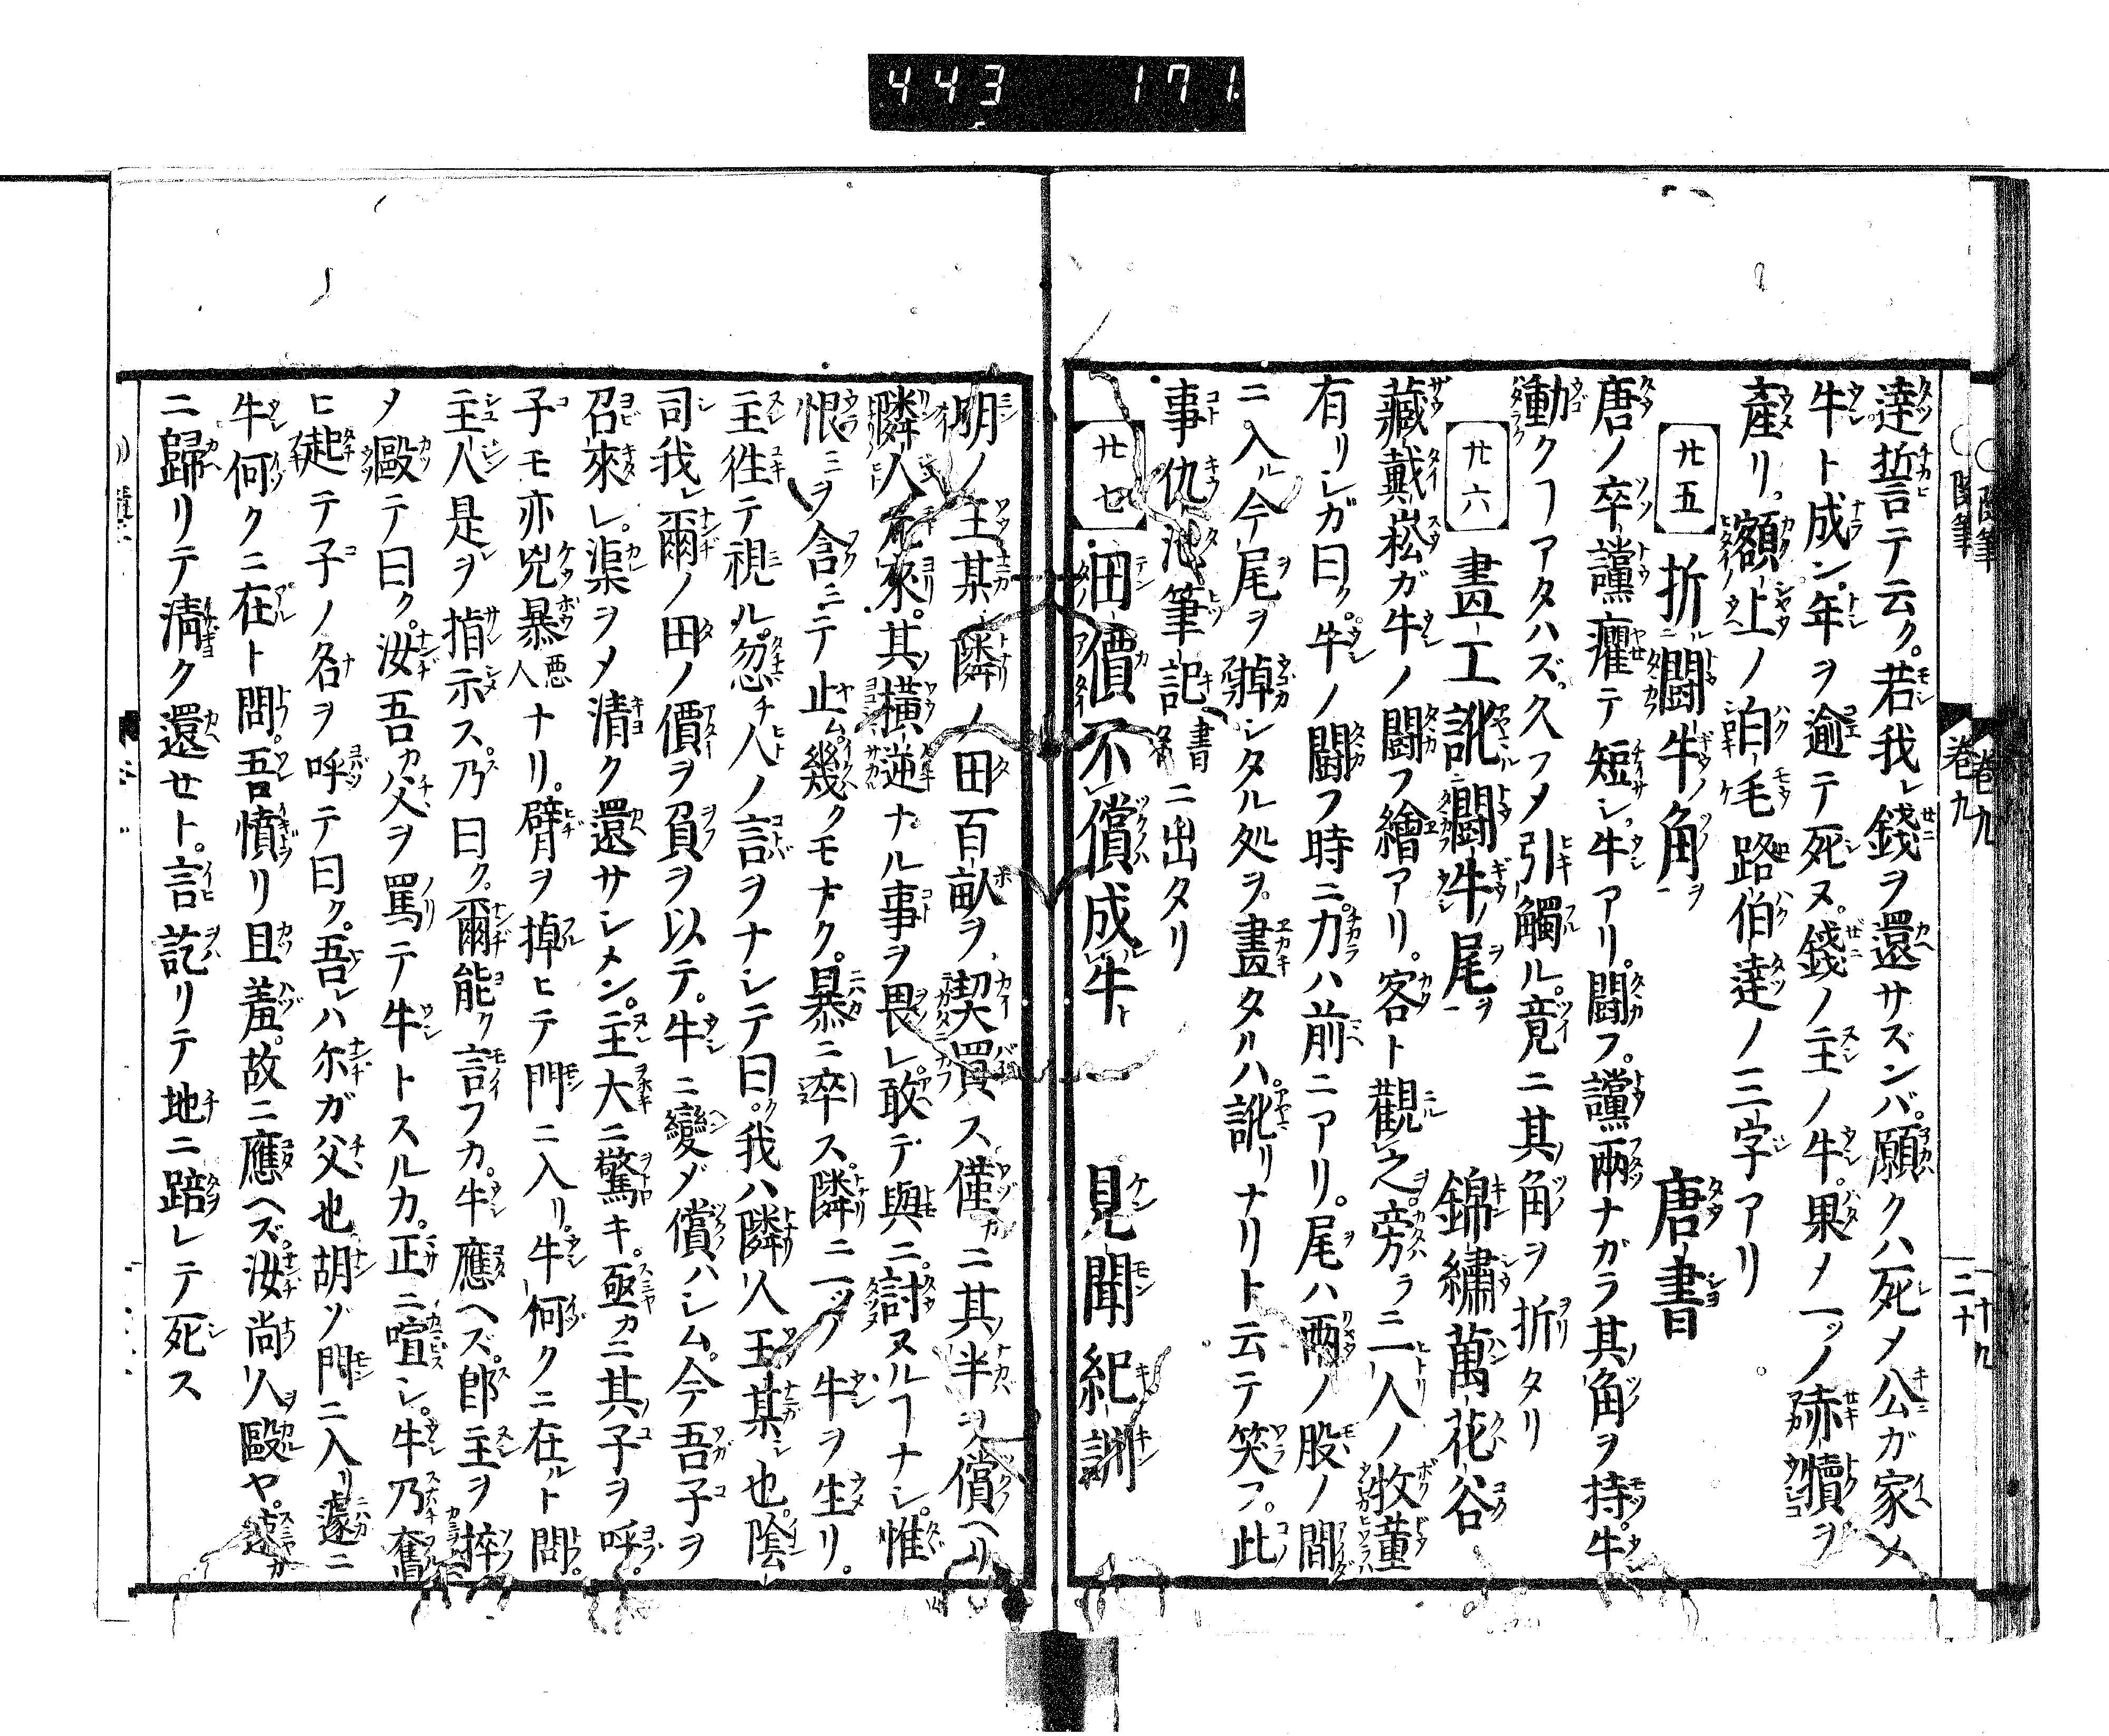 443 171.
達誓テ云ク。若我レ錢ヲ還サズンバ。願クハ死〆公ガ家〆
牛ト成ン。年ヲ逾テ死ヌ。錢ノ主ノ牛。果〆一ツノ赤犢ヲ
產リ。額上ノ泊毛路伯達ノ三字アリ
廿五 折闘牛角ヲ 唐書
唐ノ卒讜癯テ短シ。牛アリ。闘フ。讜兩ナガラ其角ヲ持。牛
動クヿアタハズ。久フ〆引觸ル。竟ニ其角ヲ折タリ
廿六 畫工訛闘牛ノ尾ヲ 錦繡萬花谷
藏戴崧ガ牛ノ闘フ繪アリ。客ト觀之旁ラニ一人ノ牧童
有リシガ曰ク。牛ノ闘フ時ニ。力ハ前ニアリ。尾ハ兩ノ股ノ間
ニ入ル今尾ヲ掉シタル処ヲ。畫タルハ。訛リナリト云テ笑フ。此
事仇池筆記書ニ出タリ
廿七 田價不償成牛ト 見聞紀訓
明ノ王某隣ノ田百畝ヲ契買ス僅ニ其半ヲ償ヘリ
隣人元來。其橫逆ナル事ヲ畏レ敢テ與ニ。討ヌルヿナシ。惟
恨ミヲ含ミテ止ム。幾クモナク。暴ニ卒ス。隣ニ一ツノ牛ヲ生リ。
主徃テ視ル。忽チ人ノ言ヲナシテ曰。我ハ隣人王某也。陰
司我レ爾ノ田ノ價ヲ負ヲ以テ。牛ニ變ジ償ハシム。今吾子ヲ
召來レ。渠ヲ〆清ク還サシメン。主大ニ驚キ。亟カニ其子ヲ呼。
子モ亦兇暴惡人ナリ。臂ヲ掉ヒテ門ニ入リ。牛何クニ在ルト問。
主人是ヲ指示ス。乃曰ク。爾能ク言フカ。牛應ヘズ。郎主ヲ捽
〆毆テ曰ク。汝吾カ父ヲ罵テ牛トスルカ。正ニ喧シ。牛乃奮
ヒ起テ子ノ名ヲ呼テ曰ク。吾レハ尓ガ父也胡ゾ門ニ入リ遽ニ
牛何クニ在ト問。吾憤リ且羞。故ニ應ヘズ。汝尚人ヲ毆ヤ。速カ
ニ歸リテ清ク還セト。言訖リテ地ニ踣レテ死ス
隨筆 卷九 十九
隨筆 卷九 二十